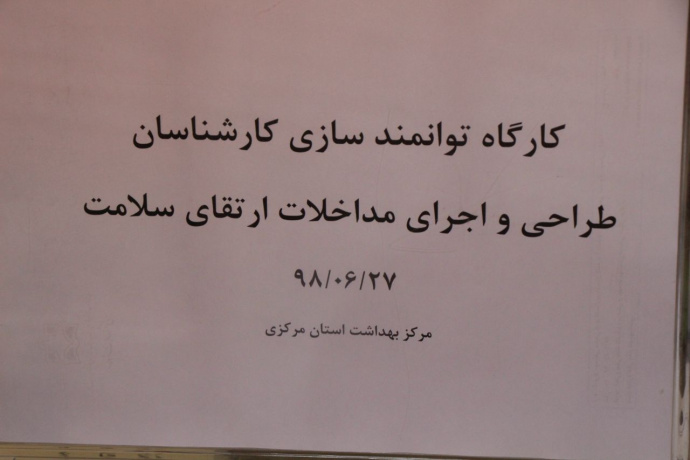 کارگاه توانمند سازی کارشناسان
طراحی و اجرای مداخلات ارتقای سلامت
۹۸/۰۶/۲۷
مرکز بهداشت استان مرکزی